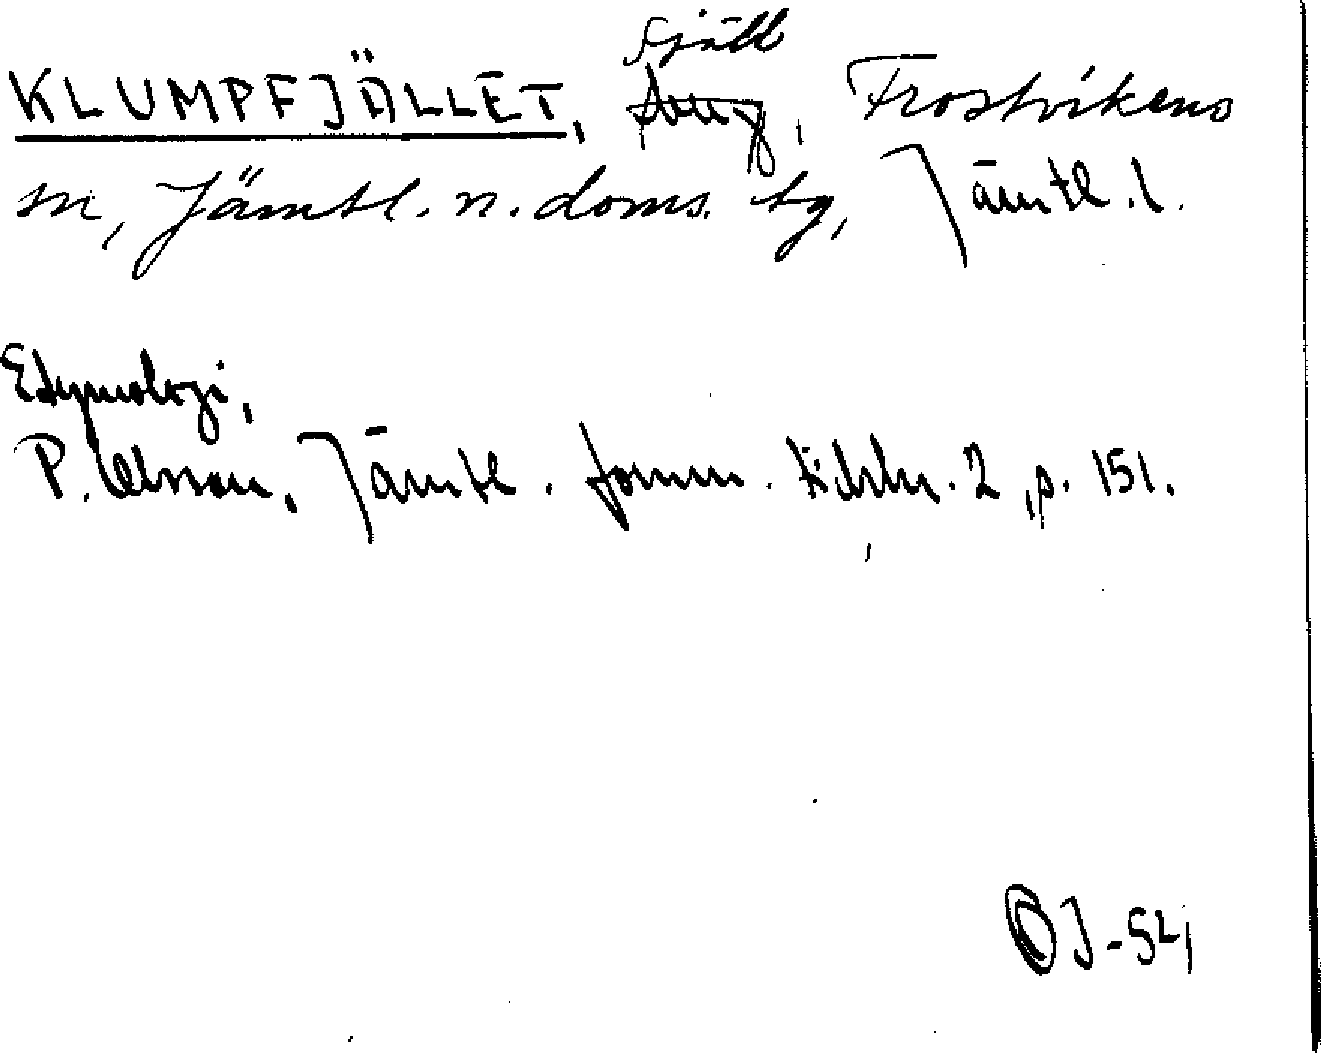 fjäll
KLUMPFJÄLLET, Frostvikens
sn, Jämtl. n. doms. tg, Jämtl. l.
Etymologi,
P. Olsson, Jämtl. fornm. tidskr. 2, p. 151.
OJ-54